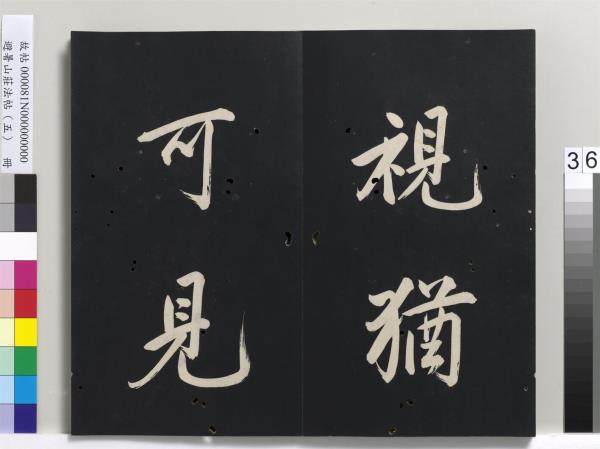 視猶
可見
故帖 000081N000000000
避暑山莊法帖（五） 冊
36